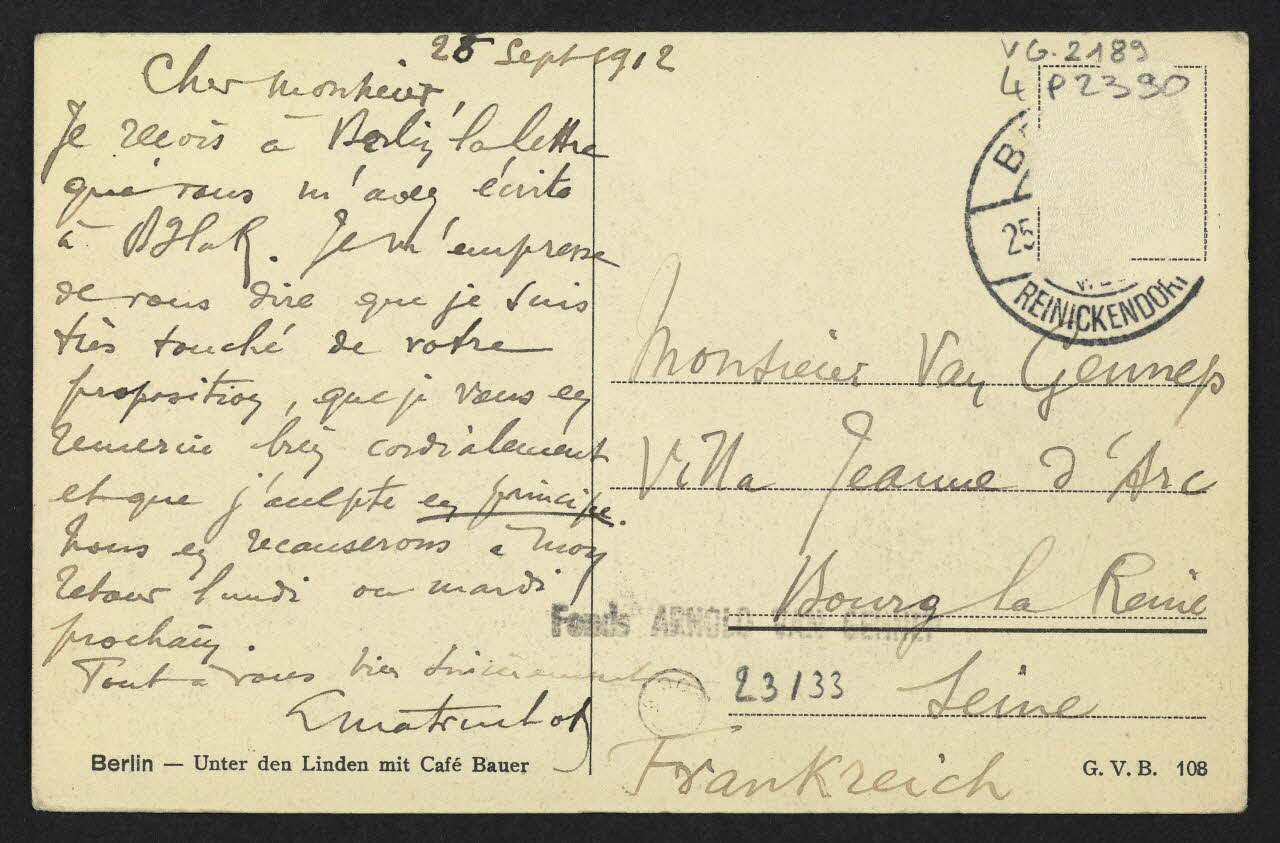 25 Sept 1912
Cher Monsieur,
Je reçois à Berlin la lettre
que vous m'avez écrite
à
Je m'empresse
de vous dire que je suis
très touché de votre
proposition, que je vous en
remercie bien cordialement
et que j'accepte en principe.
Nous en recauserons à mon
retour lundi ou mardi
prochain.
Tout à vous bien sincèrement
Berlin — Unter den Linden mit Café Bauer
VG. 2189
4 P 2390
25
REINICKENDORF
Monsieur Van Gennep
Villa Jeanne d'Arc
Bourg la Reine
Fonds ARNOLD VAN GENNEP
23/33
Seine
Frankreich
G. V. B. 108